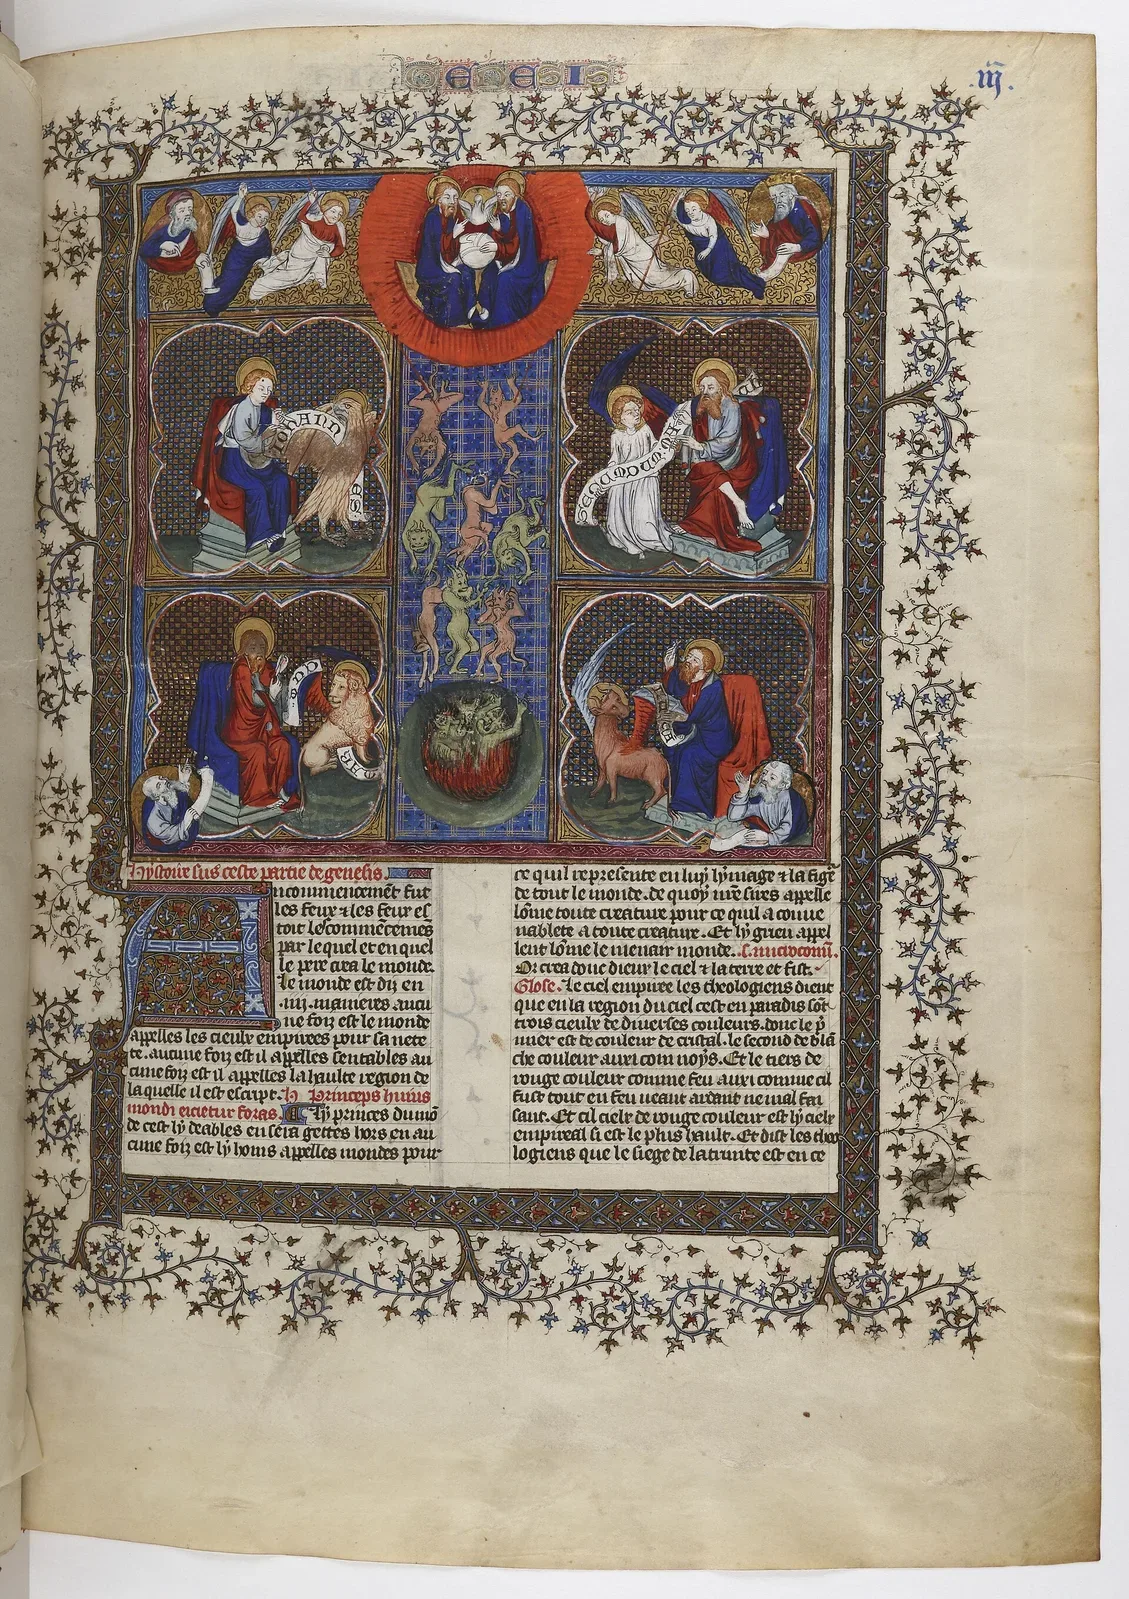 GENESIS
.iij.
IOHANN
ES
SECUNDUM MA
TH
SCUS
MAR
Hystoire sus ceste partie de genesis.
In commencement fut
les feux ⁊ les feux est
tout le commēcemēs
par le quel et en quel
le pere crea le monde.
Le monde est dit en
.iiij. manieres aucu
ne foiz est le monde
appelles les cieulx empirees pour sa nete
te. aucune foiz est il appelles sentables au
cune foiz est il appelles la haulte region de
la quelle il est escript. Princeps huius
mondi eicietur foras. Ly princes du mō
de cest ly deables en sera gettes hors en au
cune foiz est ly homs appelles mondes pour
ce quil represente en luy lymage ⁊ la figē
de tout le monde. de quoy nr̄e sires appelle
lōme toute creature pour ce quil a conue
nablete a toute creature. Et ly grieu appel
lent lōme le menair monde. .i. microcosm̄.
Or crea donc dieux le ciel ⁊ la terre et fist.
Glose. Le ciel empiree les theologiens dient
que en la region du ciel cest en paradis sōt
trois cieulx de diuerses couleurs. donc le p̄
mier est de couleur de cristal. le second de blā
che couleur auxi com noys. Et le tiers de
rouge couleur comme feu auxi comme cil
fust tout en feu neant ardant ne mal fai
sant. Et cil ciele de rouge couleur est ly ciele
empireal si est le plus hault. Et dist les theo
logiens que le siege de la trinite est en ce